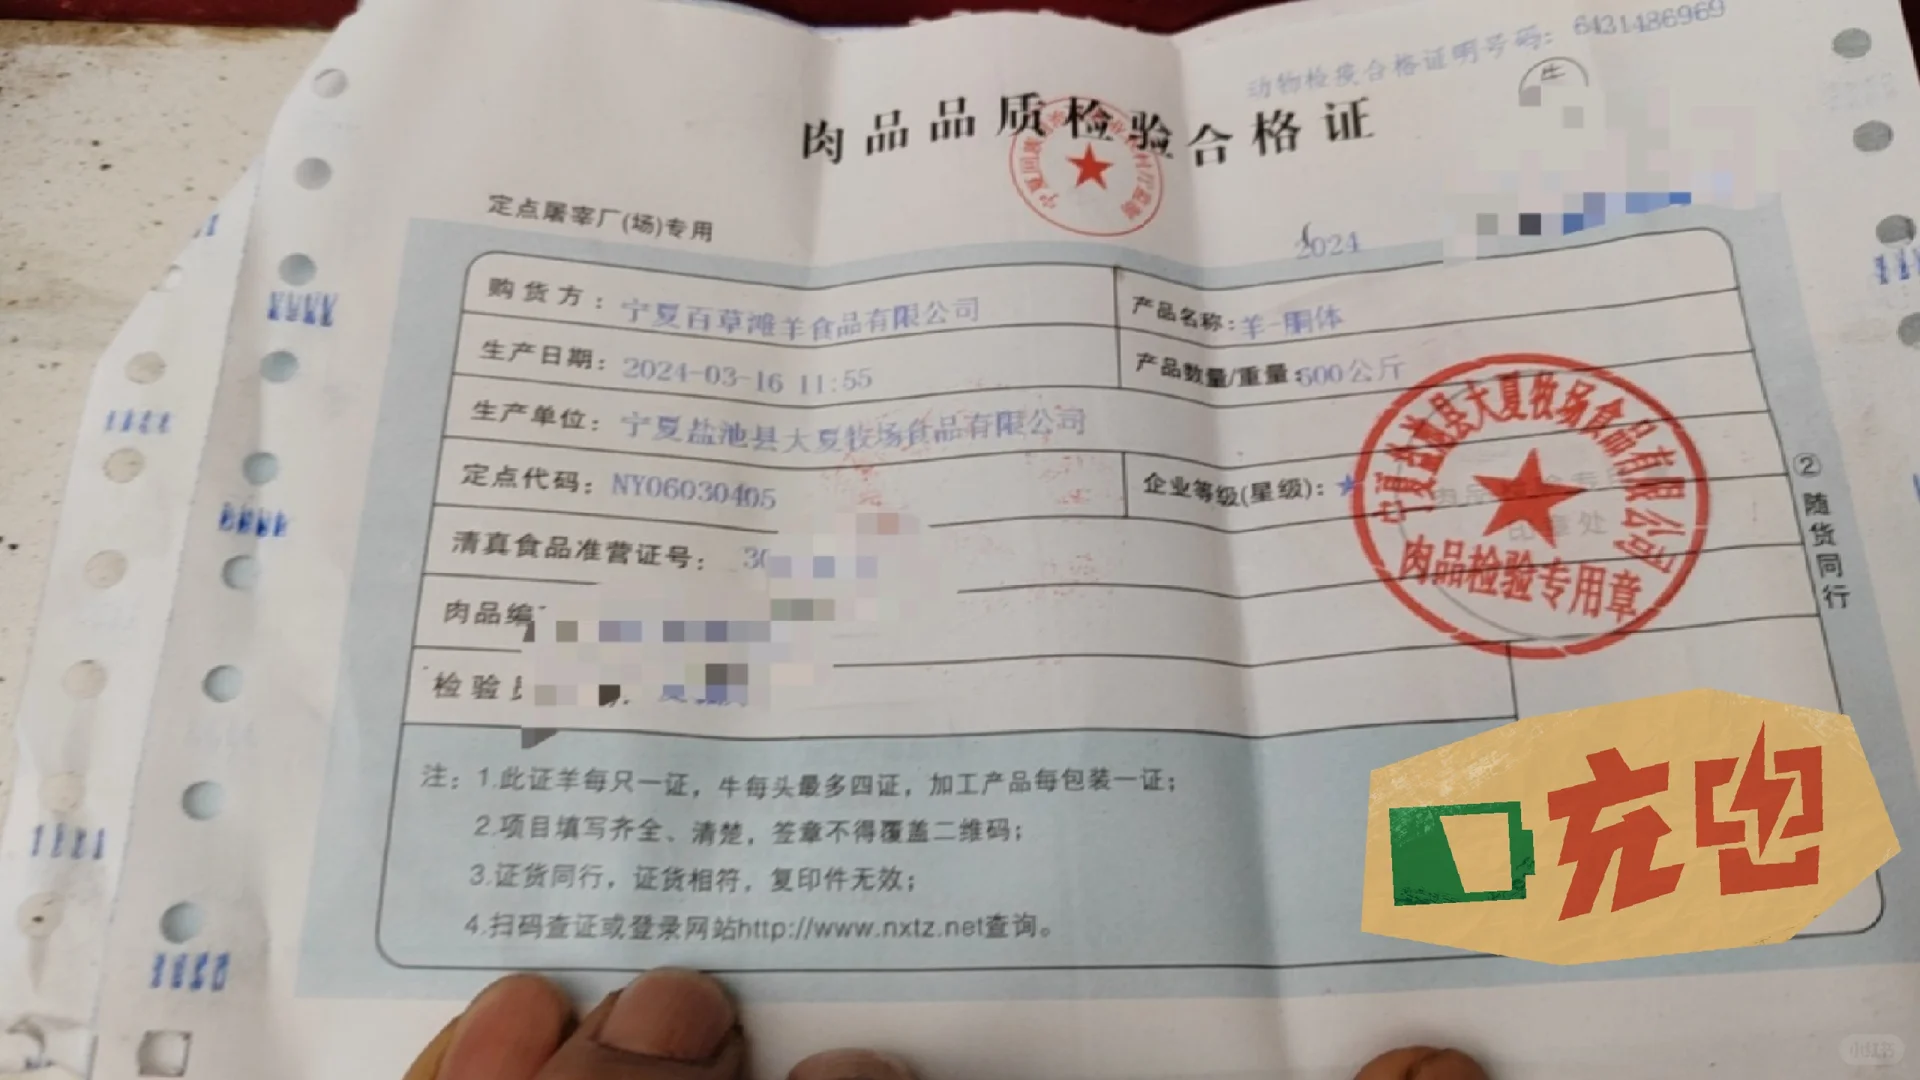 动物检疫合格证明号码：6431486969
肉品品质检验合格证
定点屠宰厂(场)专用
2024
购货方：宁夏百草滩羊食品有限公司
产品名称：羊-胴体
生产日期：2024-03-16 11:55
产品数量/重量：600公斤
生产单位：宁夏盐池县大夏牧场食品有限公司
定点代码：NY06030405
企业等级(星级)：★
清真食品准营证号：30
肉品编
检验员
宁夏盐池县大夏牧场食品有限公司
肉品检验专用章
②随货同行
注：1.此证羊每只一证，牛每头最多四证，加工产品每包装一证；
2.项目填写齐全、清楚，签章不得覆盖二维码；
3.证货同行，证货相符，复印件无效；
4.扫码查证或登录网站http://www.nxtz.net查询。
充电
小红书